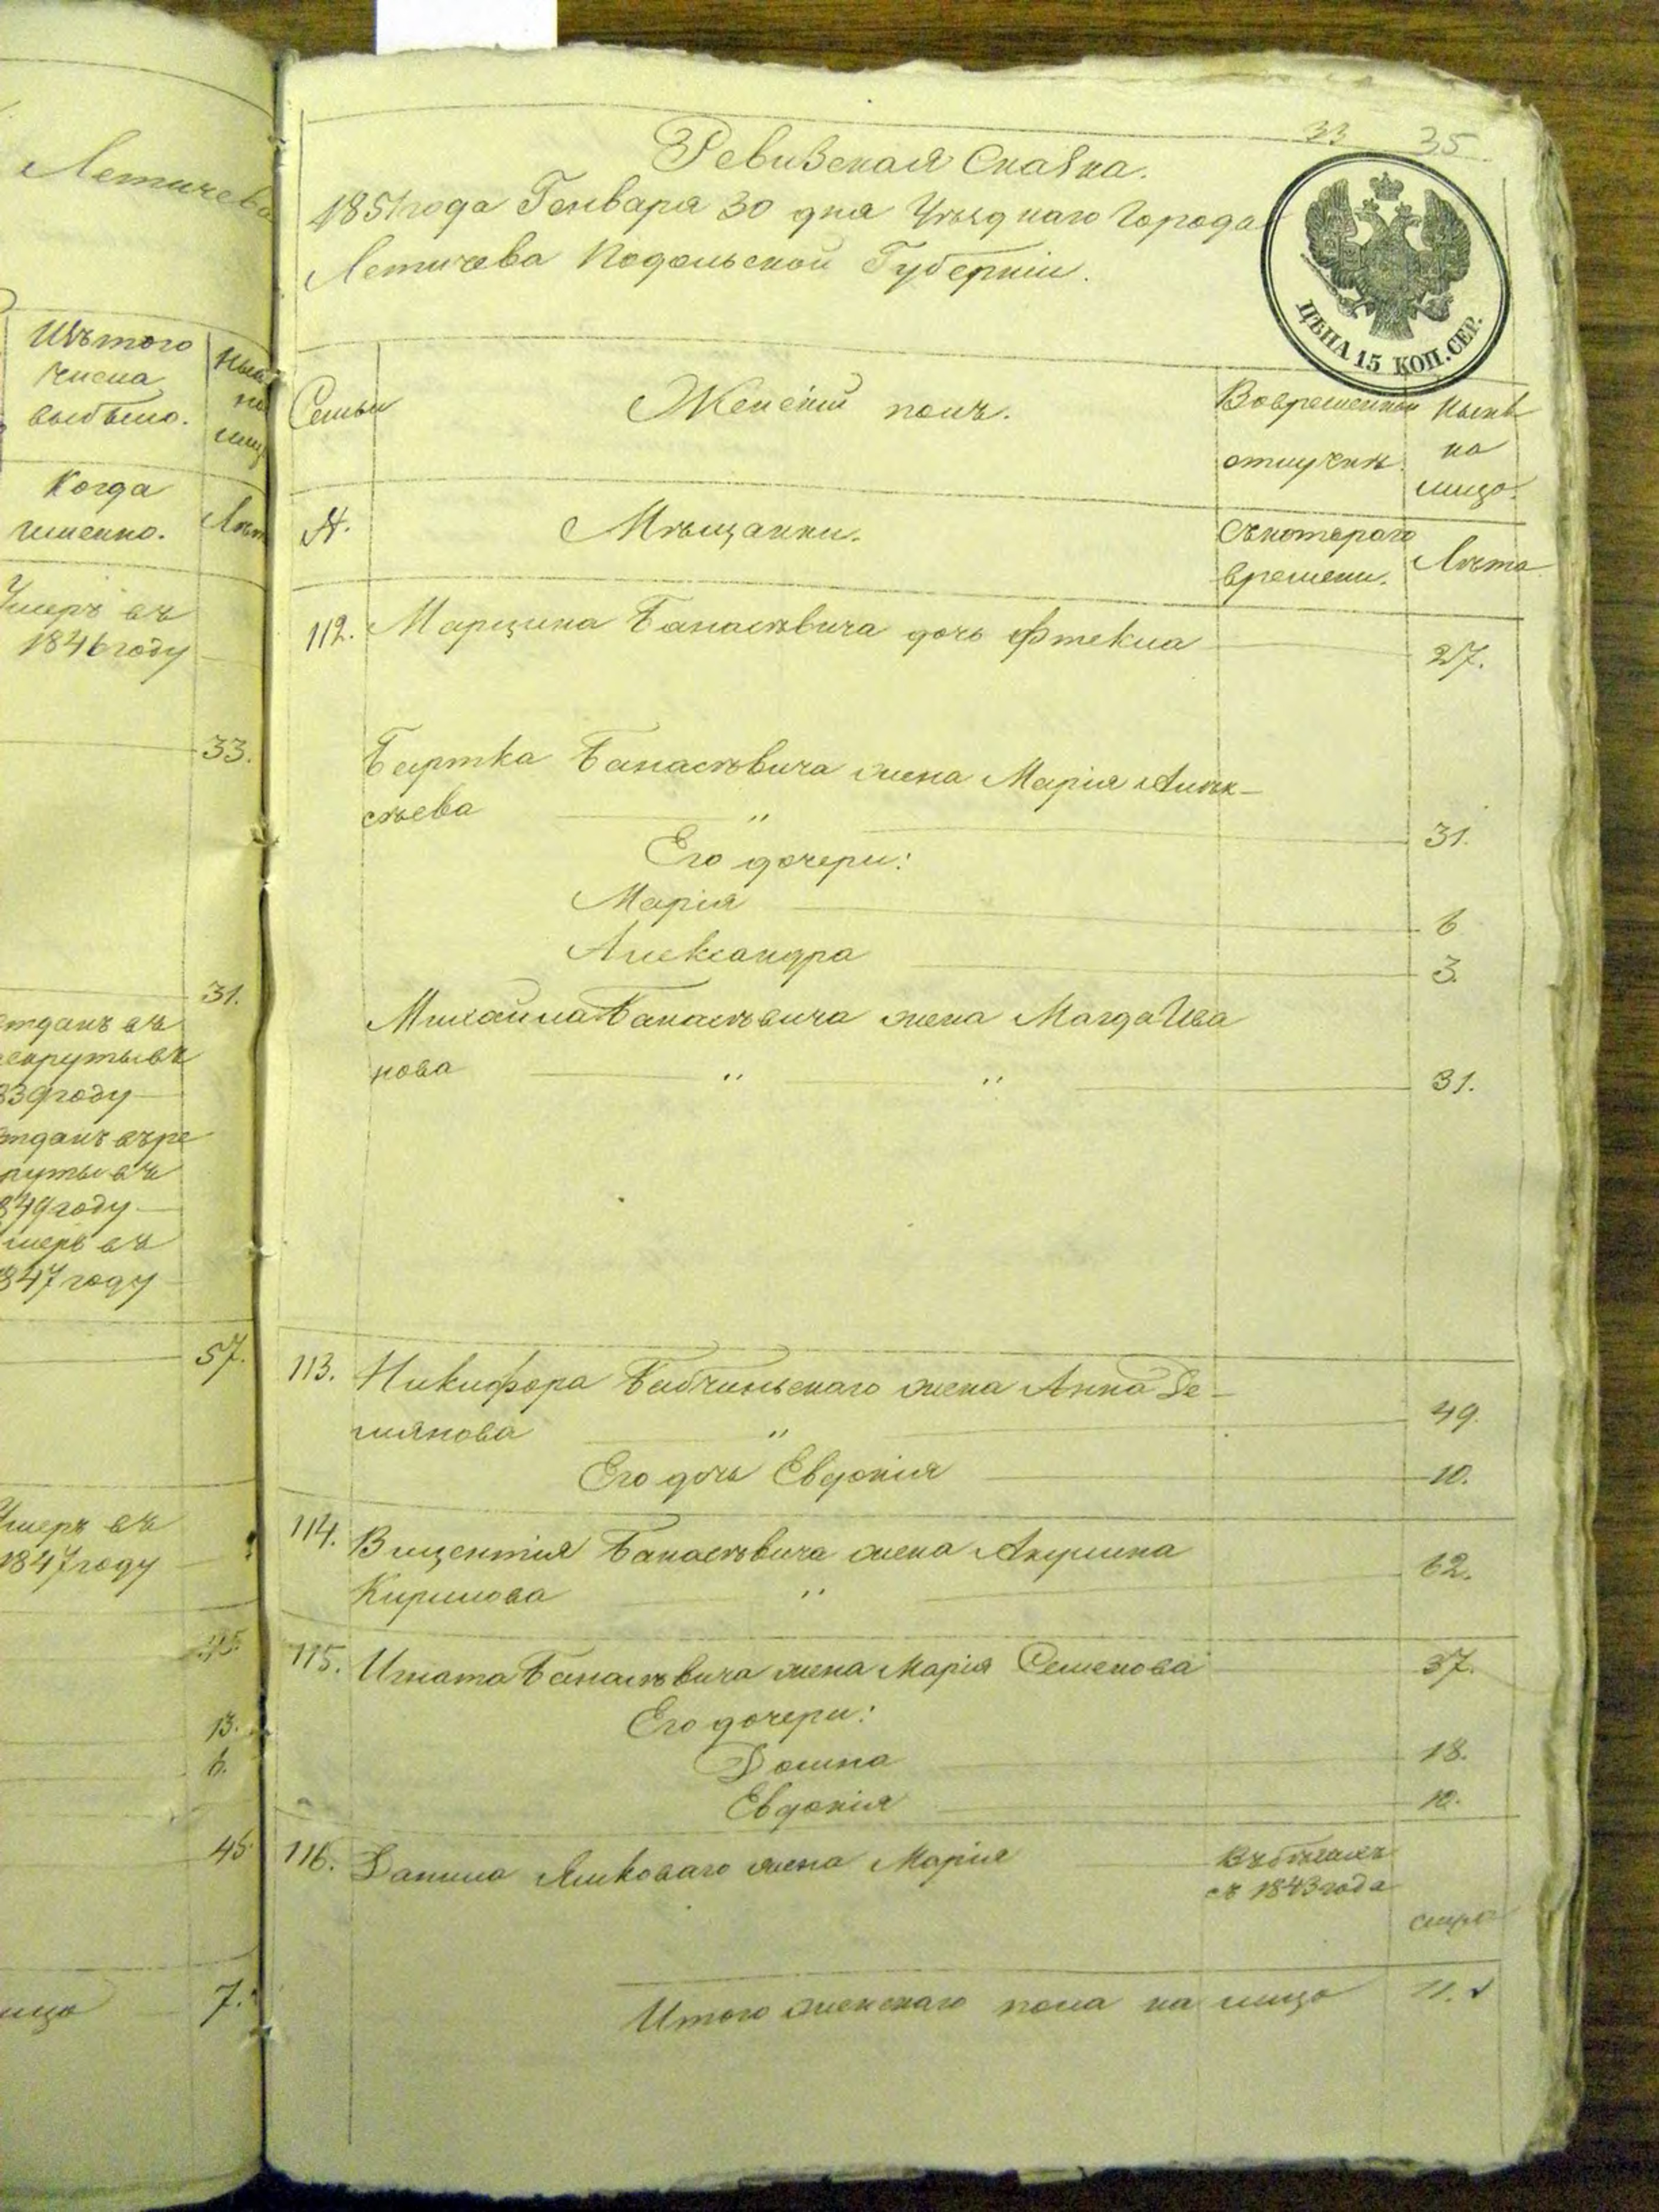 Летичева
Изъ того
числа
выбыло.
Когда
именно.
Лѣт
Умеръ въ
1846 году
33.
31.
отданъ въ
рекруты въ
839 году
отданъ въ ре
круты въ
849 году
умеръ въ
847 году
57.
Умеръ въ
1847 году
13.
6.
45
лицо 7.
33 35
Ревизская Сказка.
1851 года Генваря 30 дня Уѣзднаго Города
Летичева Подольской Губерніи.
ЦѢНА 15 КОП. СЕР.
Семьи
Женскій полъ.
Во временной
отлучкѣ.
Нынѣ
на
лицо.
№.
Мѣщанки.
Съ котораго
времени.
Лѣта
112. Марцина Банасѣвича дочь 27.
Бартка Банасѣвича жена Марія Алек-
сѣева " 31.
Его дочери:
Марія 6
Александра 3.
Михайла Банасѣвича жена Магда Ива
нова " " 31.
113. Никифора Бабчинскаго жена Анна Де-
мянова " 49.
Его дочь Евдокія 10.
114. Вицентія Банасѣвича жена Акулина
Кирилова " 62.
115. Игната Банасѣвича жена Марія Семенова 37.
Его дочери:
Домна 18.
Евдокія 10.
116. Данила Яцковаго жена Марія
Въ бѣгахъ
съ 1843 года
Итого женскаго пола на лицо 11.